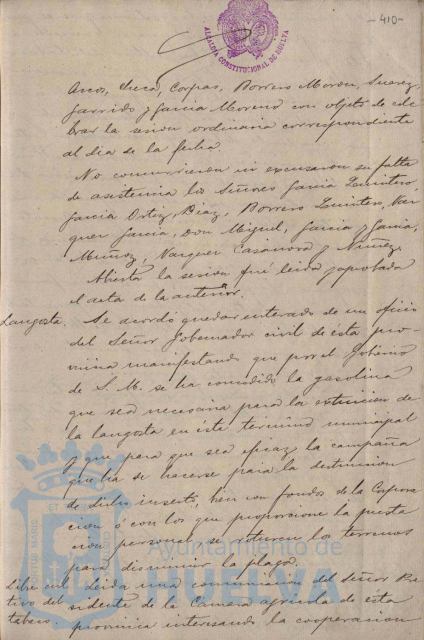 -410-
ALCALDIA CONSTITUCIONAL DE HUELVA
Arcos, Checa, Corpas, Borrero Moron, Suarez,
Garrido y Garcia Moreno con objeto de cele
brar la sesion ordinaria correspondiente
al dia de la fecha.
No concurrieron ni excusaron su falta
de asistencia los Señores Garcia Quintero,
Garcia Ortiz, Diaz, Borrero Quintero, Vaz
quez Garcia, Don Miguel, Garcia y Garcia,
Muñoz, Vazquez Casanova y Nuñez.
Abierta la sesion fué leida y aprobada
el acta de la anterior.
Langosta. Se acordó quedar enterado de un oficio
del Señor Gobernador civil de esta pro-
vincia manifestando que por el Gobierno
de S. M. se ha concedido la gasolina
que sea necesaria para la extincion de
la langosta en este termino municipal
y que para que sea eficaz la campaña
que ha de hacerse para la destruccion
de dicho insecto, bien con fondos de la Corpora
cion ó con los que proporcione la presta
cion personal se roturen los terrenos
para disminuir la plaga.
Libre cul Leida una comunicacion del Señor Pre
tivo del sidente de la Camara agricola de esta
tabaco provincia interesando la cooperacion
Ayuntamiento de
HUELVA